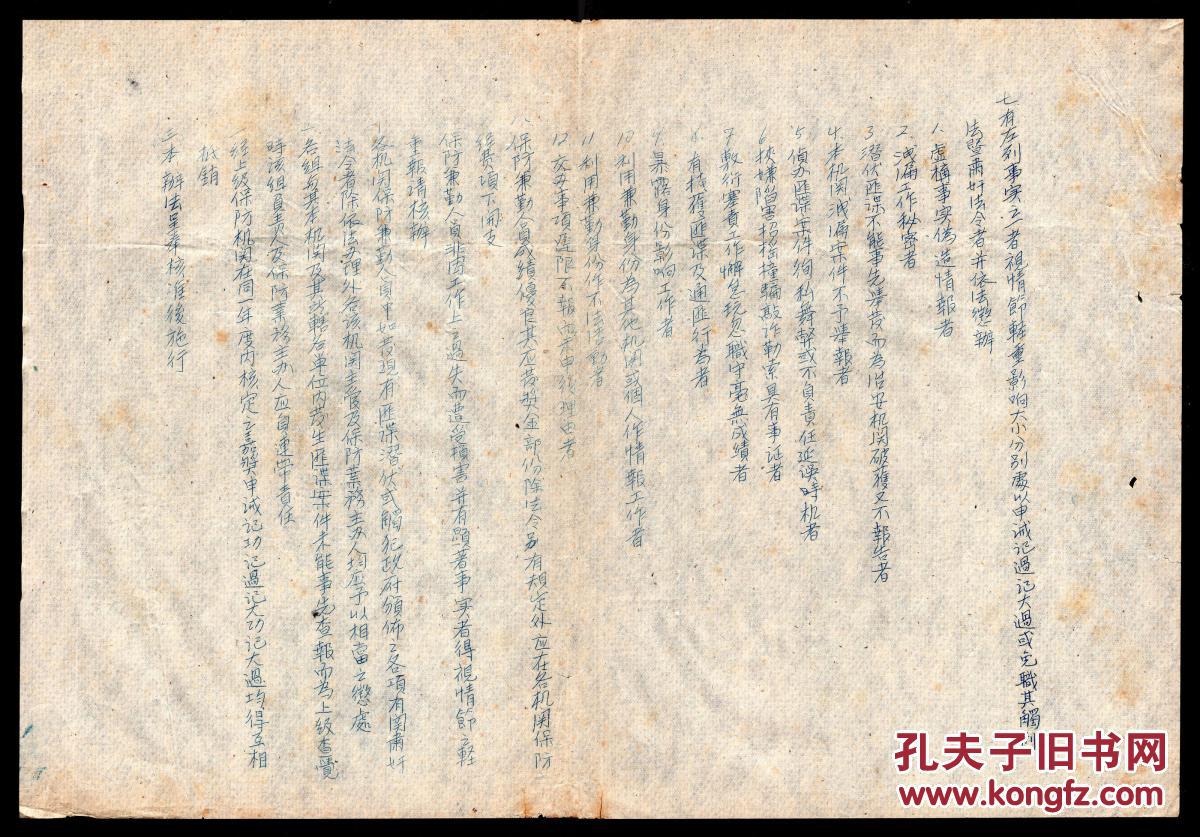 七有左列事实之者視情節輕重影响大小分别處以申诫记過记大過或免職其觸
法暨肅奸法令者并依法懲辦
1.虚構事实偽造情報者
2.洩漏工作秘密者
3.潛伏匪諜不能事先举發而為治安机関破獲又不報告者
4.本机関洩漏案件不予举報者
5.偵办匪諜案件徇私舞弊或不負責任延误時机者
6.挾嫌陷害招摇撞騙敲诈勒索具有事证者
7.敷衍塞責工作懈怠玩忽職守毫無成績者
8.有掩護匪諜及通匪行為者
9.暴露身份影响工作者
10.利用兼勤身份為其他机関或個人作情報工作者
11.利用兼勤身份作不法活動者
12.交办事項逾限不報亦未申復理由者
八保防兼勤人員成績優良其应發奨金部份除法令另有規定外应在各机関保防
经费項下開支
保防兼勤人員非因工作上之過失而遭受損害并有顕著事实者得視情節輕
重報請核辦
各机関保防兼勤人員中如發現有匪諜潛伏或觸犯政府頒佈之各項有関肅奸
法令者除依法办理外各该机関主管及保防業務主办人均应予以相當之懲處
各組与其本机関及其所轄各单位内發生匪諜案件未能事先查報而為上級查覺
時该組負责人及保防業務主办人应自連帶责任
经上級保防机関在同一年度内核定之嘉奨申诫记功记過记大功记大過均得互相
抵銷
三本辦法呈奉核准後施行
孔夫子旧书网
www.kongfz.com